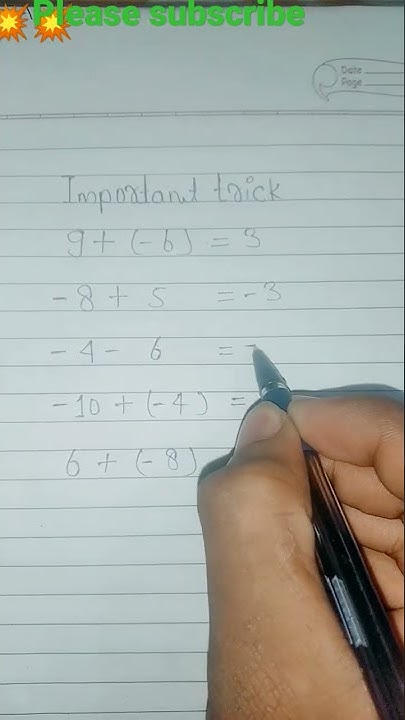 Please subscribe
Date
Page
Important trick
9 + (-6) = 3
-8 + 5 = -3
-4 - 6 = -
-10 + (-4) =
6 + (-8)